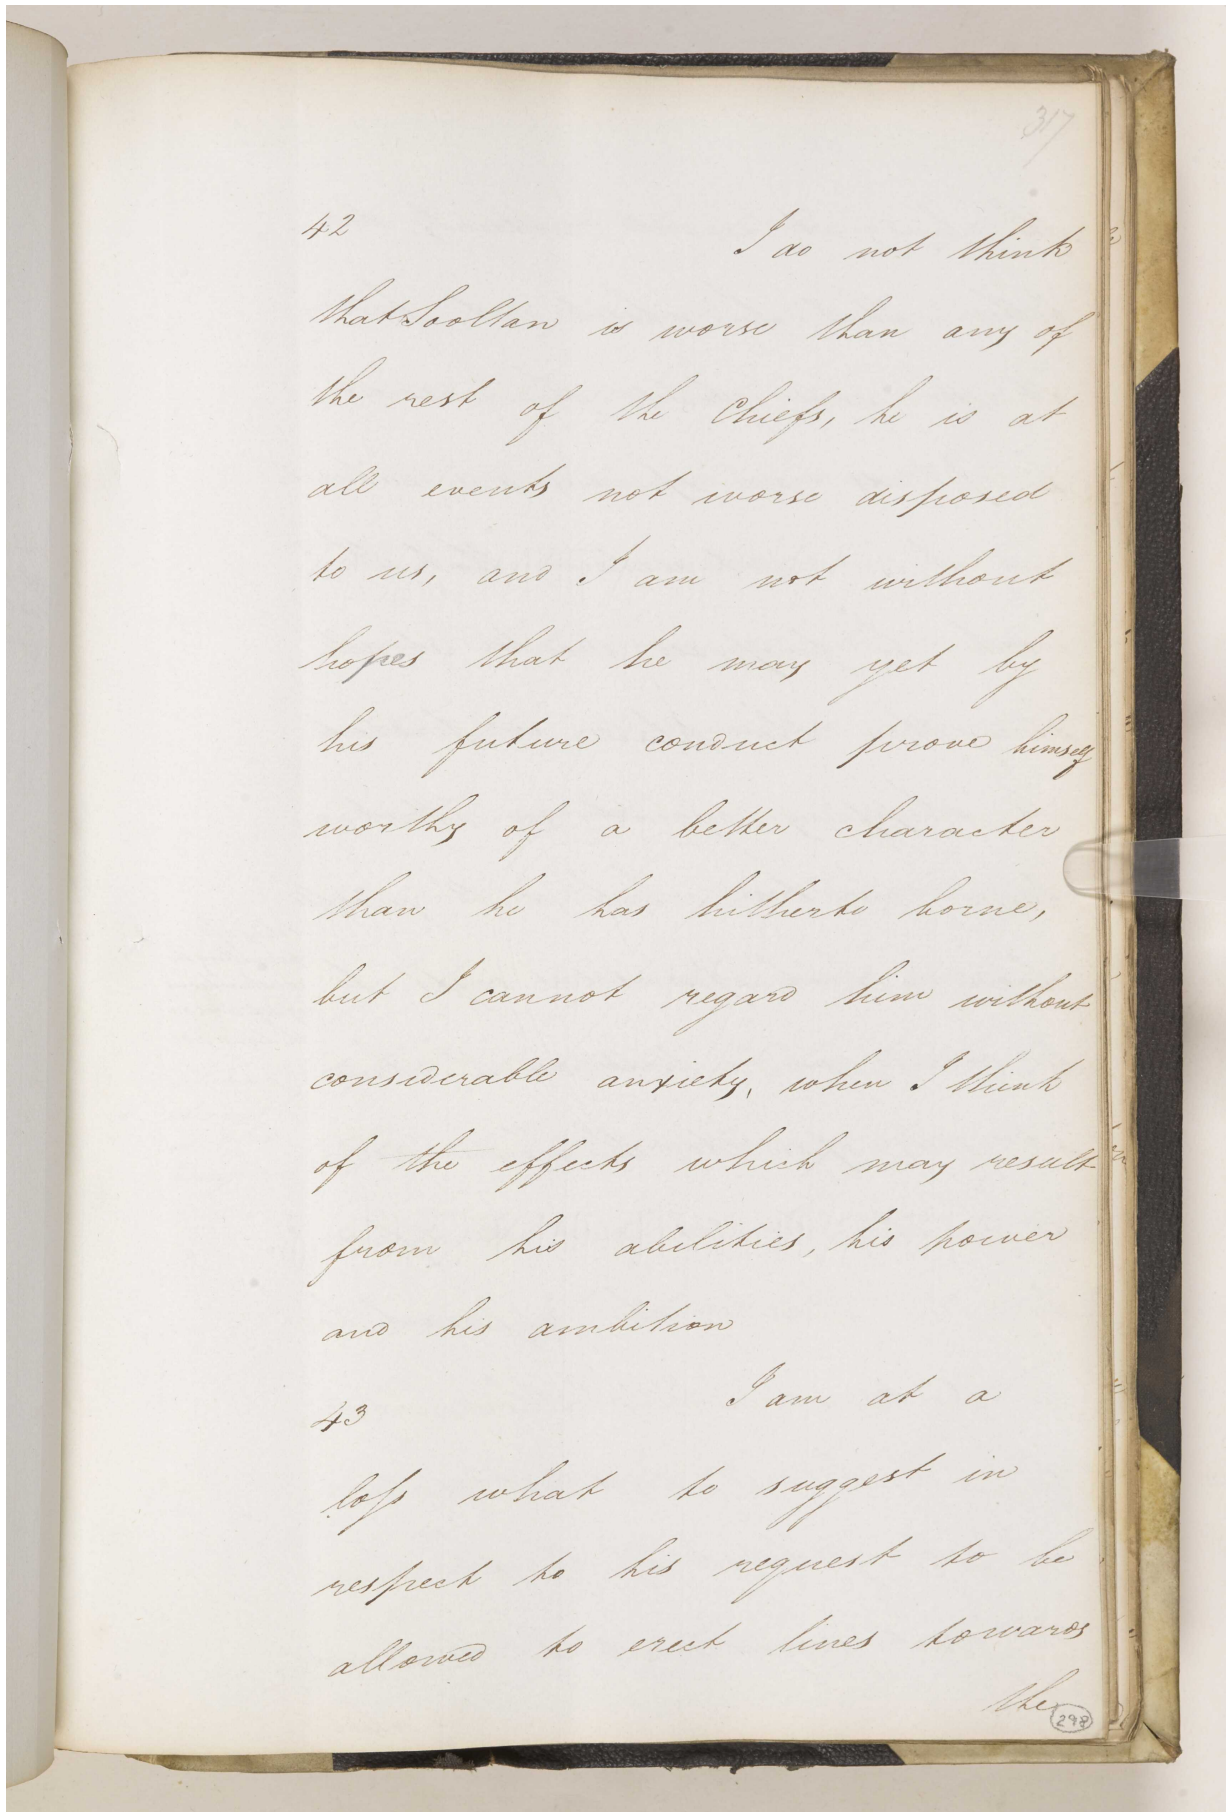 317
42
I do not think
that Sooltan is worse than any of
the rest of the Chiefs, he is at
all events not worse disposed
to us, and I am not without
hopes that he may yet by
his future conduct prove himself
worthy of a better character
than he has hitherto borne,
but I cannot regard him without
considerable anxiety, when I think
of the effects which may result
from his abilities, his power
and his ambition
43
I am at a
loſs what to suggest in
respect to his request to be
allowed to erect lines towards
the
298